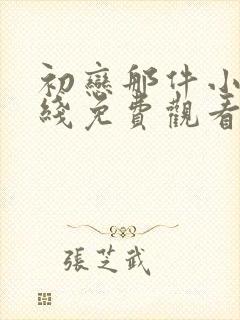 初戀那件小
綫免費觀看
張芝武